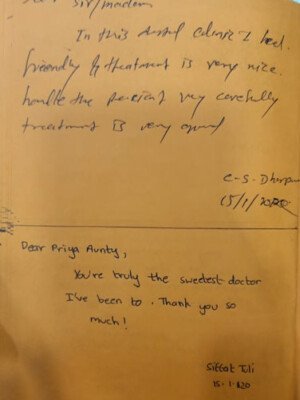 Sir/madam
In this dental clinic I feel
friendly & treatment is very nice.
handle the patient very carefully
treatment is very good
C-S-
15/1/
Dear Priya Aunty,
You're truly the sweetest doctor
I've been to. Thank you so
much!
15.1.20